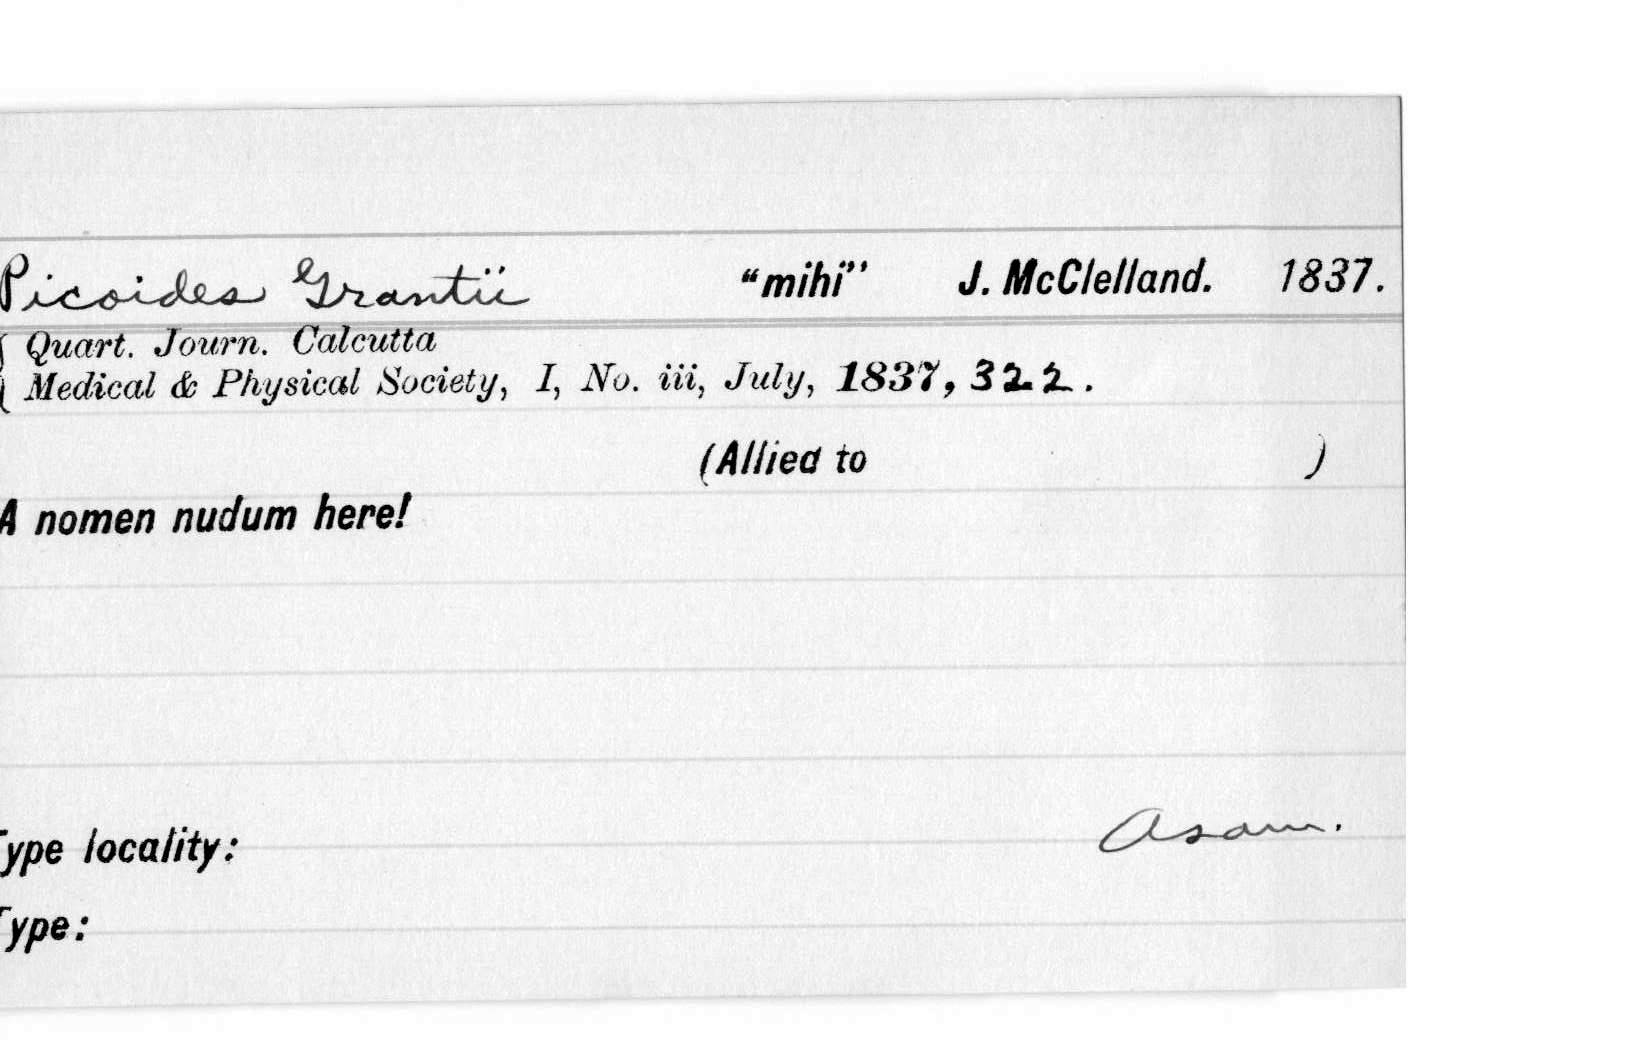 Picoides Grantii "mihi" J. McClelland. 1837.
Quart. Journ. Calcutta
Medical & Physical Society, I, No. iii, July, 1837, 322.
(Allied to )
A nomen nudum here!
Type locality: Asam.
Type: